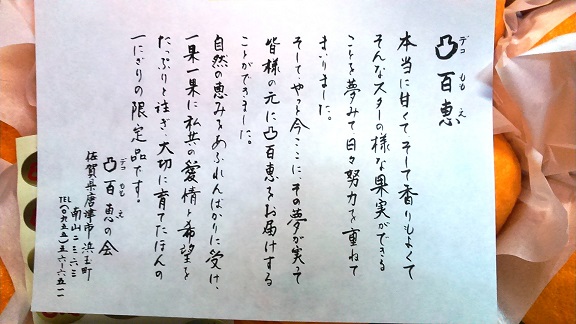 デコ もも え
凸百恵
本当に甘くて、そして香りもよくて
そんなスターの様な果実ができる
ことを夢みて日々努力を重ねて
まいりました。
そして、やっと今ここに、その夢が実って
皆様の元に凸百恵をお届けする
ことができました。
自然の恵みをあふれんばかりに受け、
一果一果に私共の愛情と希望を
たっぷりと注ぎ、大切に育てたほんの
一にぎりの限定品です。
デコ もも え
凸百恵の会
佐賀県唐津市浜玉町
南山二三六三
TEL(〇九五五)五六-六五一一